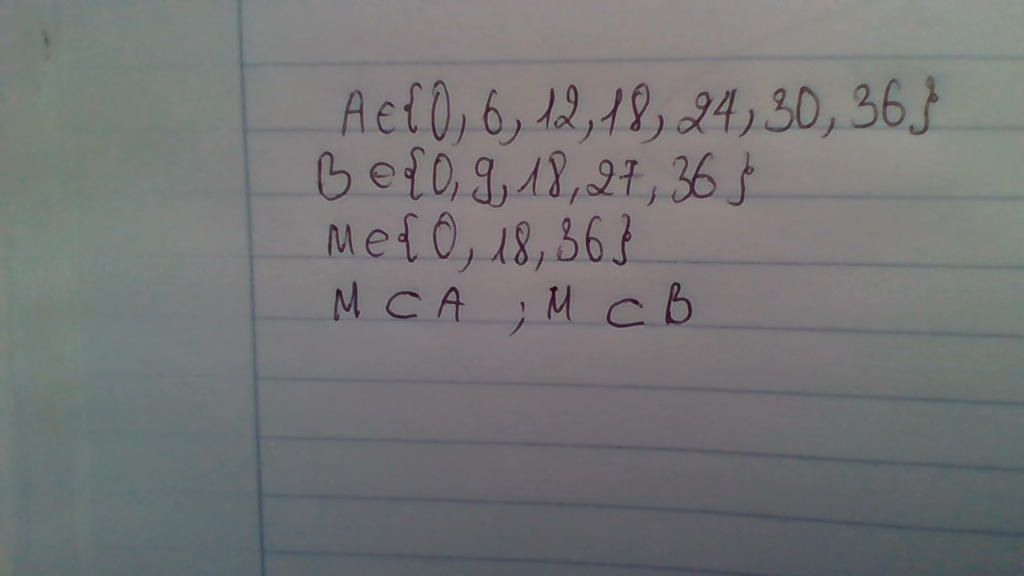 A∈{0, 6, 12, 18, 24, 30, 36}
B∈{0, 9, 18, 27, 36}
M∈{0, 18, 36}
M ⊂ A ; M ⊂ B